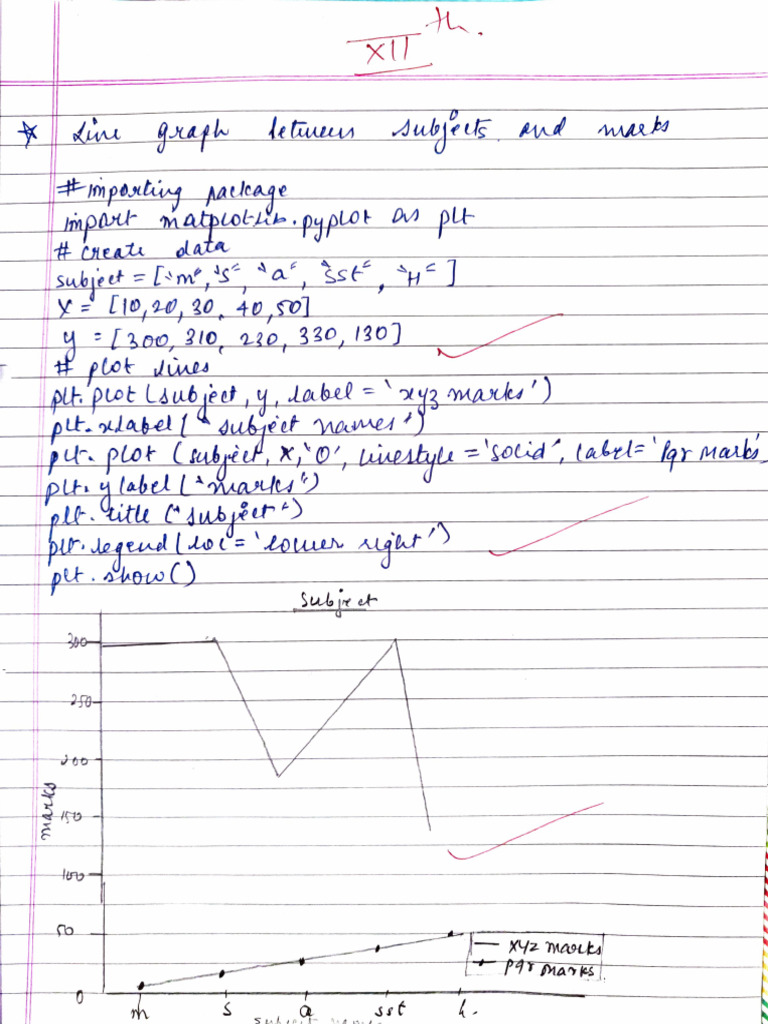 XIIth.
* Line graph between subjects and marks
# importing package
import matplotlib.pyplot as plt
# create data
subject = ["m", "s", "a", "sst", "H"]
X = [10,20,30,40,50]
y = [300, 310, 230, 330, 130]
# plot lines
plt.plot (subject, y, label = 'xyz marks')
plt.xlabel ("subject names")
plt.plot (subject, X, 'O', linestyle = 'solid', label='Pqr marks'
plt.ylabel ("marks")
plt.title ("subject")
plt.legend (loc = 'lower right')
plt.show()
Subject
300
250
200
marks
150
100
50
xyz marks
pqr marks
0
m s a sst h.
subject names